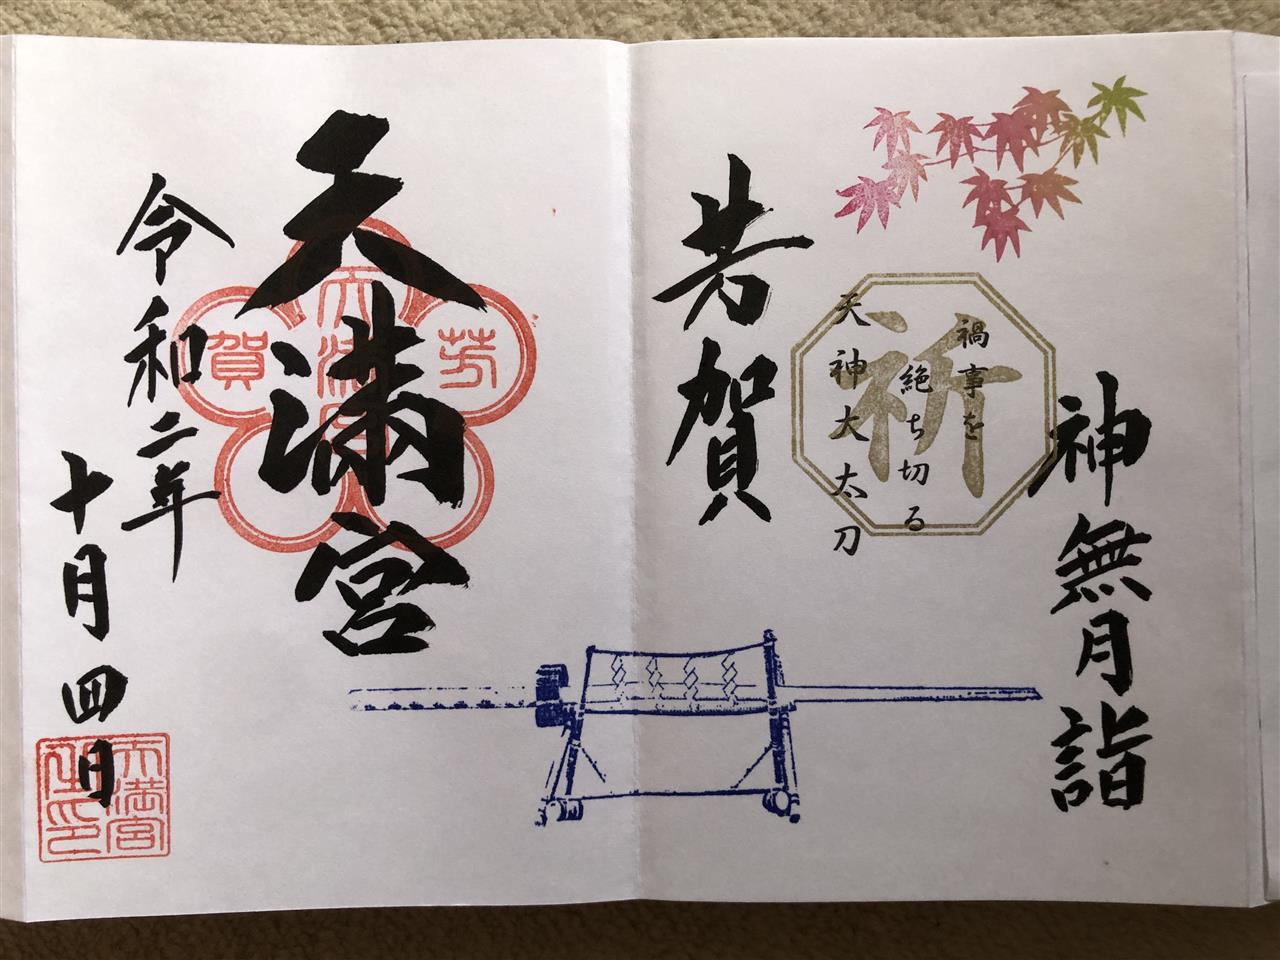 神無月詣
祈
禍事を
絶ち切る
天神大太刀
芳賀
天満宮
芳
賀
天満宮
令和二年
十月四日
天満宮